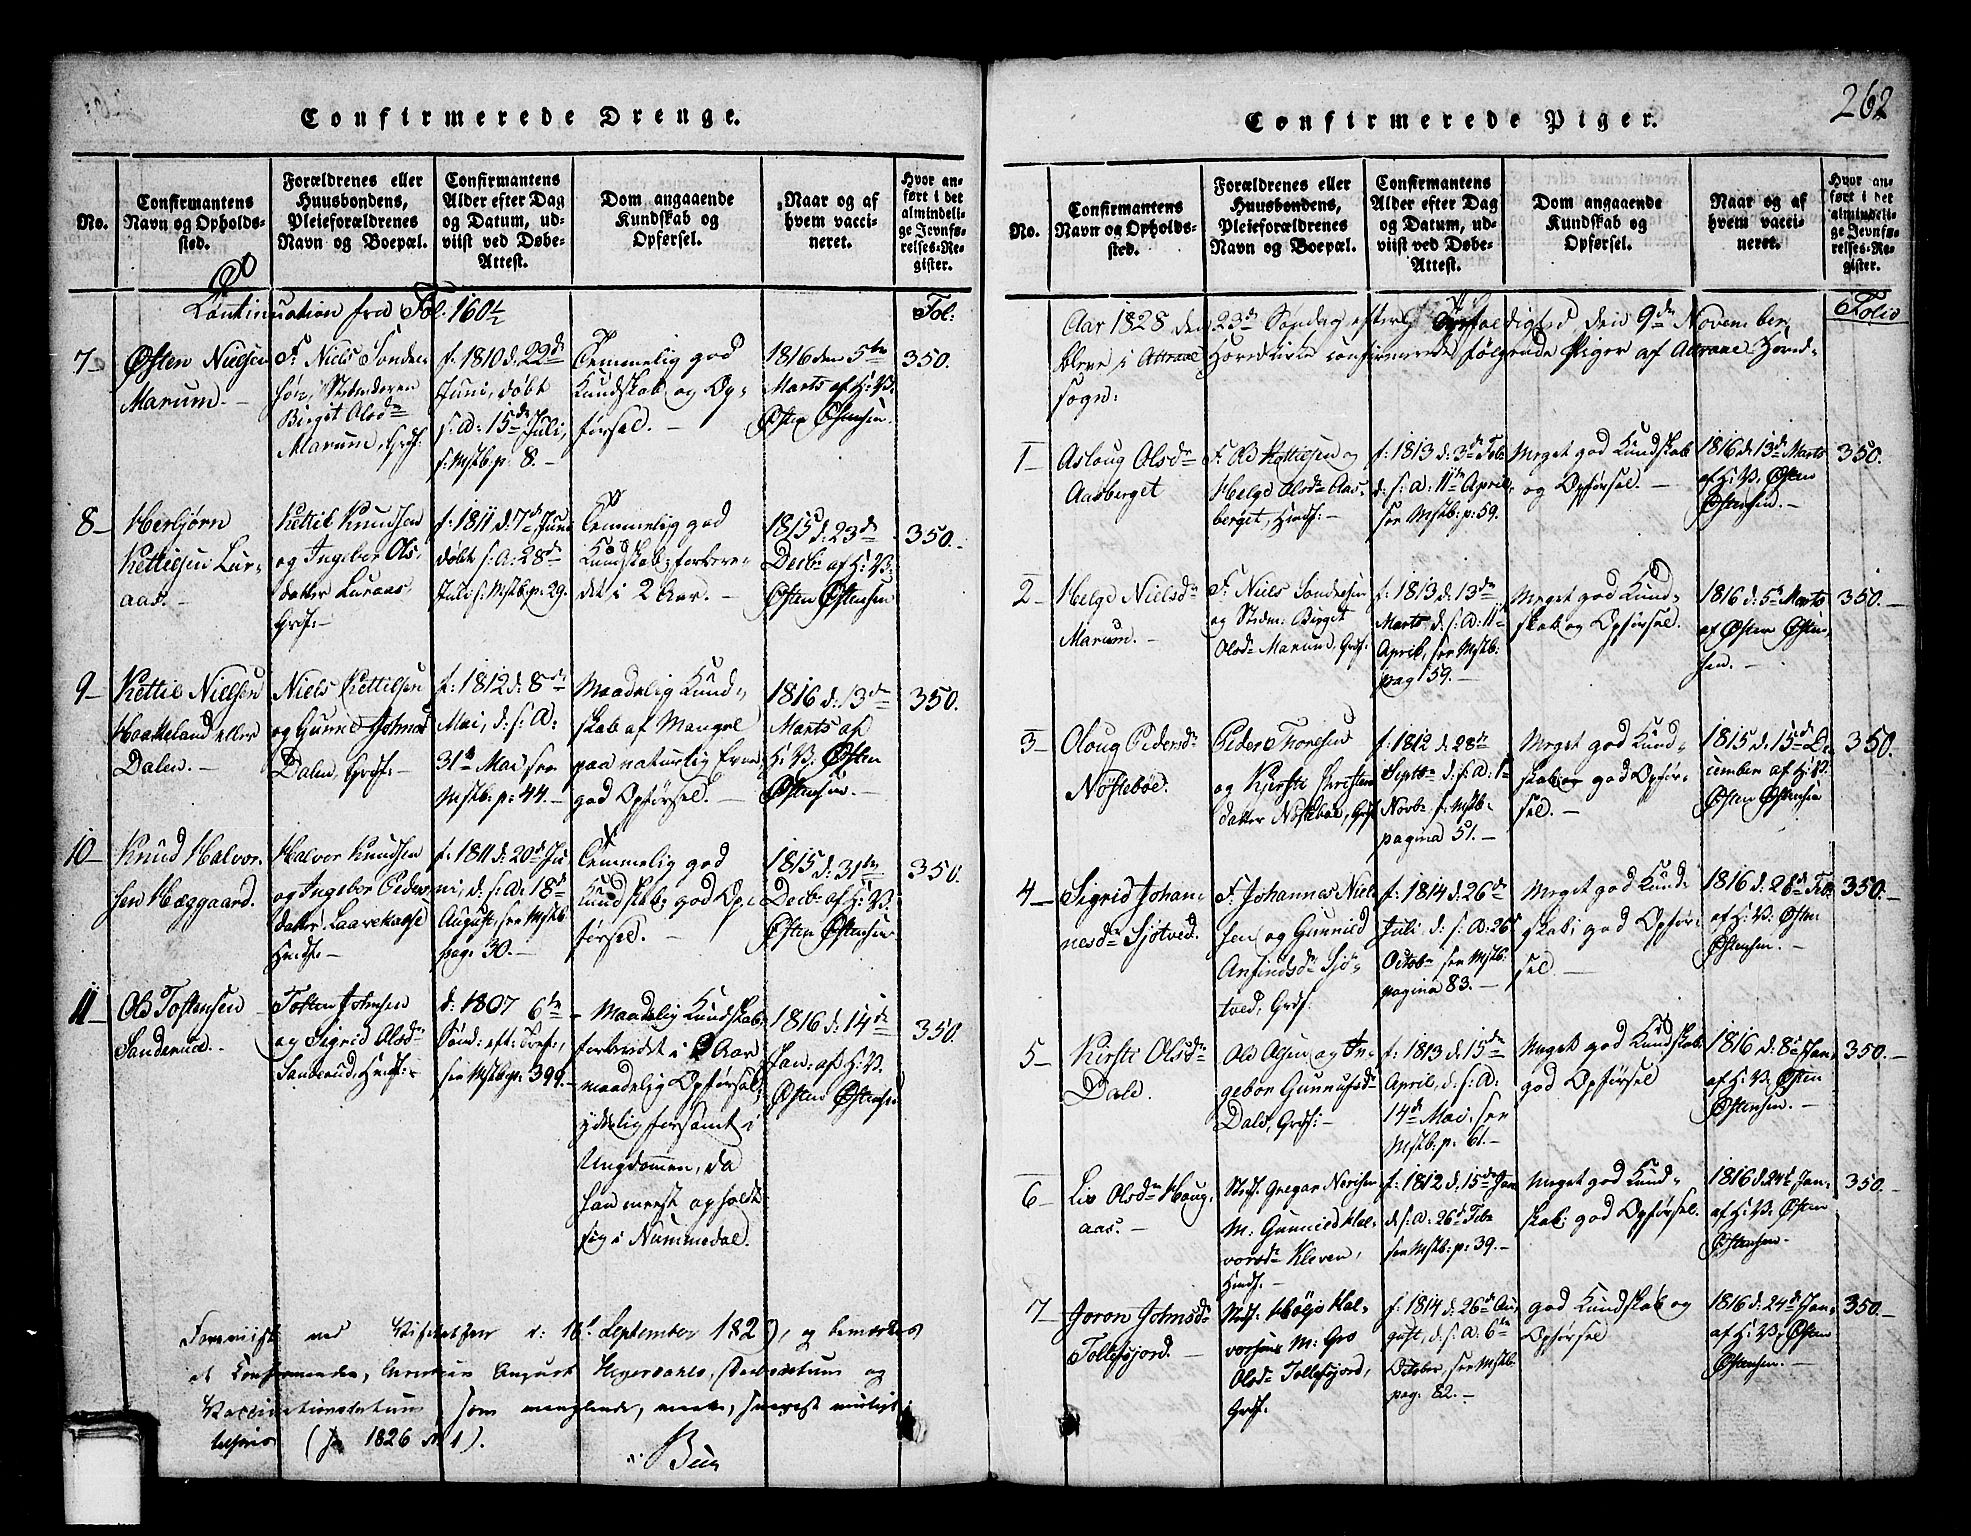 262
Confirmerede Drenge.
No.
Confirmantens
Navn og Opholds-
sted.
Forældrenes eller
Huusbondens,
Pleieforældrenes
Navn og Boepæl.
Confirmantens
Alder efter Dag
og Datum, ud-
viist ved Døbe-
Attest.
Dom angaaende
Kundskab og
Opførsel.
Naar og af
hvem vacci-
neret.
Hvor an-
ført i det
almindeli-
ge Jevnfø-
relses-Re-
gister.
Continuation fra Fol. 160½
Fol:
7
Østen Nielsen
Marum.
F. Niels Sonden
Birgit Olsdr
Marum, Grdf.
f: 1810 d: 22de
Juni, døbt
s: A: 15de Juli,
s: Mstb: p: 8.
Temmelig god
Kundskab og Op-
førsel.
1816 den 5te
Marts af H: V:
Østen Østensen.
350.
8
Herbjørn
Kettilsen Lur-
aas.
Kettil Knudsen
og Ingebor Ols-
datter Luraas,
Grdf:
f: 1811 d: 7de Juni
døbt s: A: 28de
Juli s: Mstb: p: 29.
Temmelig god
Kundskab; forbere-
det i 2 Aar.
1815 d: 23de
Decbr af H: V:
Østen Østensen
350.
9
Kettil Nielsen
Haakeland eller
Dalen.
Niels Kettilsen
og Gunne Johns
Dalen, Grdf:
f: 1812 d: 8de
Mai, d: s: A:
31te Mai see
Mstb: p: 44.
Maadelig Kund-
skab af Mangel
paa naturlig Evne
god Opførsel.
1816 d: 13de
Marts af
H: V: Østen
Østensen.
350.
10
Knud Halvor-
sen Hæggaard.
Halvor Knudsen
og Ingebor Peders
datter Laarekaase
Hmdf:
f: 1811 d: 20de Ju
ni, d: s: A: 18de
August, see Mstb:
pag: 30.
Temmelig god
Kundskab; god Op-
førsel.
1815 d: 31te
Decbr af H: V:
Østen Østensen
350.
11
Ole Tostensen
Sanderud.
Tosten Johnsen
og Sigrid Olsdr
Sanderud, Hmdf:
d: 1807 6te
Sønd: eft: Tref:,
see Mstb: p: 399.
Maadelig Kundskab,
forberedet i Aar
maadelig Opførsel,
ydelig forsømt i
Ungdommen, da
han meest opholdt
sig i Nummedal.
1816 d: 14de
Jan: af H: V:
Østen Østensen
350.
Foreviist ved Visitatsen d: 16d September 182, og bemærkes
at Confirmanden, Christian August datum og
Vaccinationsdatum, som manglende, maa, snarest muligt
(for 1826 N. 1).
Confirmerede Piger.
No.
Confirmantens
Navn og Opholds-
sted.
Forældrenes eller
Huusbondens,
Pleieforældrenes
Navn og Boepæl.
Confirmantens
Alder efter Dag
og Datum, ud-
viist ved Døbe-
Attest.
Dom angaaende
Kundskab og
Opførsel.
Naar og af
hvem vacci-
neret.
Hvor an-
ført i det
almindeli-
ge Jevnfø-
relses-Re-
gister.
Folio
Aar 1828 den 23de Søndag efter Trefoldighed, den 9de November
bleve i Attraae Hovedkirke confirmerede følgende Piger af Attraae Hoved-
sogn:
1
Aslaug Olsdr
Aasberget
F. Ole Kettilsen og
Helge Olsdr Aas-
berget, Hmdf:
f: 1813 d: 3de Febr
d: s: A: 11te April,
see Mstb: p: 59.
Meget god Kundskab
og Opførsel.
1816 d: 13de Marts
af H: V: Østen
Østensen.
350.
2
Helge Nielsdr
Marum.
F: Niels Sondresen
og Birget
Olsdr Marum, Grdf:
f: 1813 d: 13de
Marts d: s: A: 11te
April, see Mstb:
pag 59.
Meget god Kund-
skab og Opførsel.
1816 d: 5te Marts
af Østen Østen-
sen.
350.
3
Oloug Pedersdr
Nøstebøe.
Peder Thoresen
og Kirsti Christens
datter Nøstebøe, Grdf
f: 1812 d: 28de
Septbr d: s: A: 1te
Novbr s: Mstb:
pagina 51.
Meget god Kund-
skab og god Opfør-
sel.
1815 d: 15de De-
cember af H: V:
Østen Østensen
350.
4
Sigrid Johan-
nesdr Sjøtved.
F. Johannes Niel
sen og Gunnild
Anfindsdr Sjø-
tved, Grdf.
f: 1814 d: 26de
Juli d: s: A: 26
Octobr see Mstb:
pagina 83.
Meget god Kund-
skab; god Opfør-
sel.
1816 d: 28de Febr
af H: V: Østen
Østensen.
350.
5
Kirsti Olsdr
Dale.
Ole Olsen og In-
gebor Gunnufsdr
Dale, Grdf:
f: 1813 d: 15de
April, d: s: A:
14de Mai, see
Mstb: p: 61.
Meget god Kundskab
god Opførsel
1816 d: 8de Jan,
af H: V: Østen
Østensen.
350.
6
Liv Olsdr Haug-
aas.
Stedf. Gregar Nerisen
M: Gunild Hal-
vorsdr Kleven,
Hmdf.
f: 1812 d: 15de Jan
d: s: A: 26de Febr
see Mstb: p: 39.
Meget god Kund-
skab; god Opførsel.
1816 d: 24de Jan:
af H: V: Østen
Østensen.
350.
7
Joron Johnsdr
Tollefsjord.
Stedf. Høljo Hal-
vorsens M: Gro
Olsdr Tollefsjord,
Grdf.
f: 1814 d: 26de Au,
gust, d: s: A: 6te
October, see Mstb
pag: 82.
god Kundskab og
Opførsel
1816 d: 24de Jan:
af H: V: Østen
Østensen.
350.